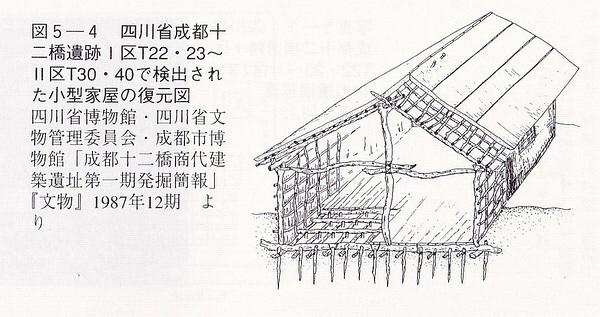 図5―4　四川省成都十
二橋遺跡Ⅰ区T22・23～
Ⅱ区T30・40で検出され
た小型家屋の復元図
四川省博物館・四川省文
物管理委員会・成都市博
物館「成都十二橋商代建
築遺址第一期発掘簡報」
『文物』1987年12期　よ
り